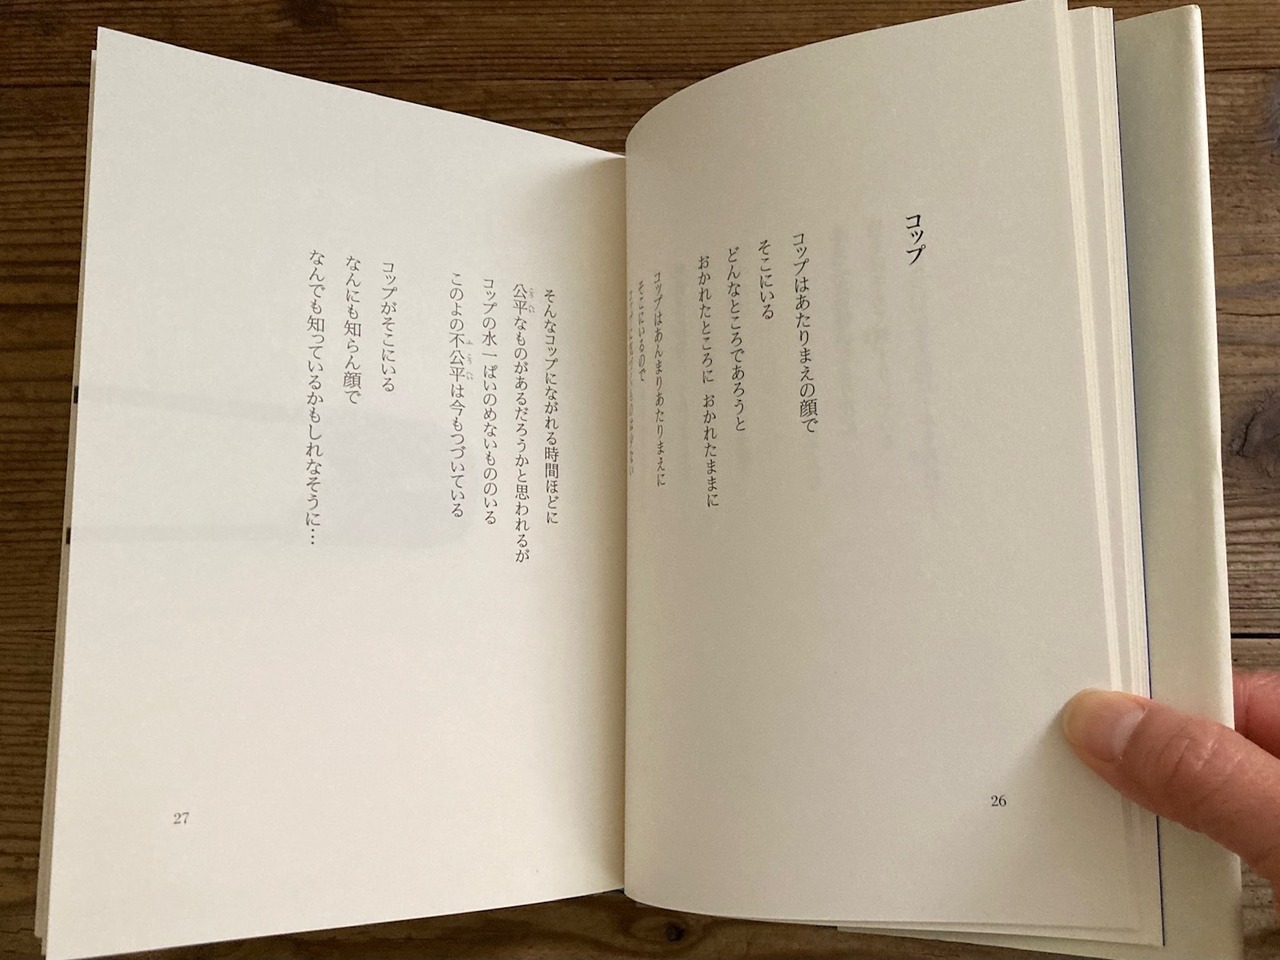 コップ
コップはあたりまえの顔で
そこにいる
どんなところであろうと
おかれたところに おかれたままに
コップはあんまりあたりまえに
そこにいるので
26
そんなコップにながれる時間ほどに
公平なものがあるだろうかと思われるが
コップの水一ぱいのめないもののいる
このよの不公平は今もつづいている
コップがそこにいる
なんにも知らん顔で
なんでも知っているかもしれなそうに…
27